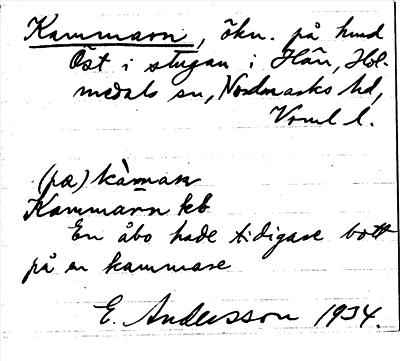 Kammarn, ökn. på hmd
Öst i stugan i Hån, Hol-
medals sn, Nordmarks hd,
Vrml l.
(pa) kàmaɳ
Kammarn kb
En åbo hade tidigare bott
på en kammare
E. Andersson 1934.